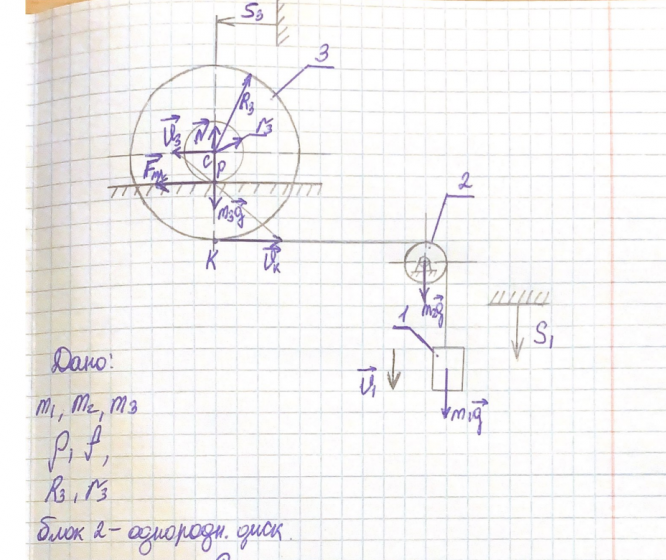 S₃
3
R₃
r₃
V⃗₃
N⃗
C
P
F⃗тр
m₃g⃗
K
V⃗ₖ
2
m₂g⃗
1
S₁
V⃗₁
m₁g⃗
Дано:
m₁, m₂, m₃
ρ, f,
R₃, r₃
блок 2 - однородн. диск.